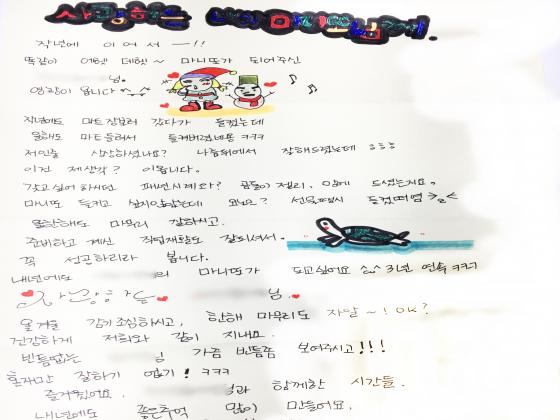 사랑하는 나의 마니또님께.
작년에 이어서 —!!
똑같이 어쩌 데헷~ 마니또가 되어주신
님.
영광이 옵니다 ^_^
작년에도 마트 장보러 갔다가 들켰는데
올해도 마트 들러서 들켜버렸네용 ㅋㅋㅋ
저인줄 상상하셨나요? 나름위에서 잘해드렸는데
이건 제생각? 이옵니다.
갖고싶어 하시던 패션시계와? 곰돌이 젤리. 맘에 드셨는지요.
마니또 들키고 싶지않았는데
올한해도 마무리 잘하시고.
준비하고 계신 직업재활도 잘되셔서.
꼭 성공하리라 봅니다.
내년에도 의 마니또가 되고싶어요 3년 연속 ㅋㅋㅋ
사랑하는 님.
올겨울 감기조심하시고, 한해 마무리도 자알~! OK?
건강하게 저희와 같이 지내요.
빈틈없는 님 가끔 빈틈좀 보여주시고!!!
혼자만 잘하기 없기! ㅋㅋㅋ
즐거웠어요. 과 함께한 시간들.
내년에도 좋은추억 많이 만들어요.